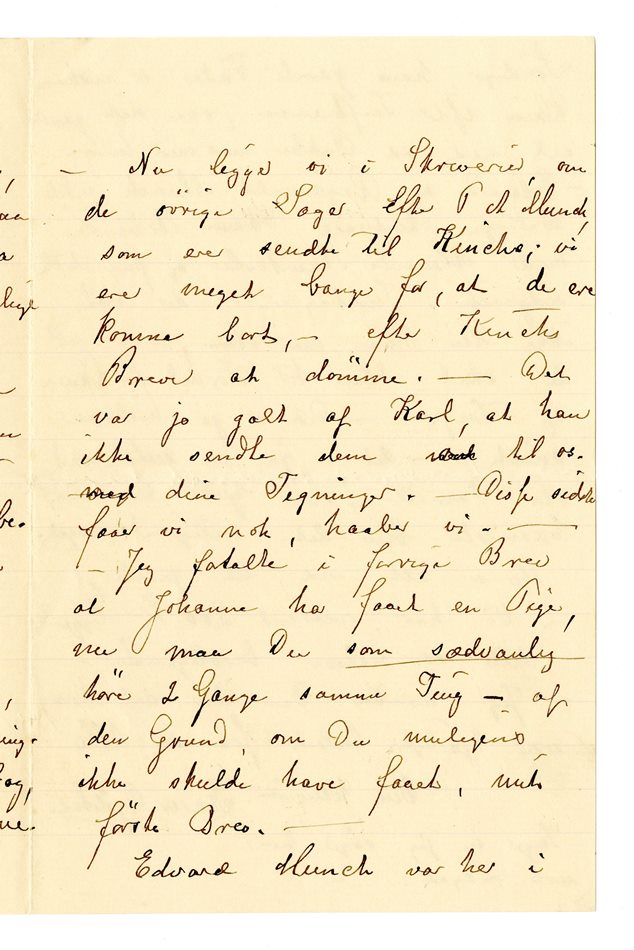 — Nu ligge vi i Skriverier, om
de övrige Sager Efter P A Munch,
som ere sendte til Kinchs; vi
ere meget bange for, at de ere
komne bort, — efter Kinchs
Breve at dömme. — Det
var jo galt af Karl, at han
ikke sendte dem til os.
med dine Tegninger. — Disse sidste
faaer vi nok, haaber vi. —
— Jeg fortalte i forrige Brev
at Johanne har faaet en Pige,
nu maa Du som sædvanlig
höre 2 Gange samme Ting — af
den Grund, om Du muligens
ikke skulde have faaet, mit
förste Brev. —
Edvard Munch var her i